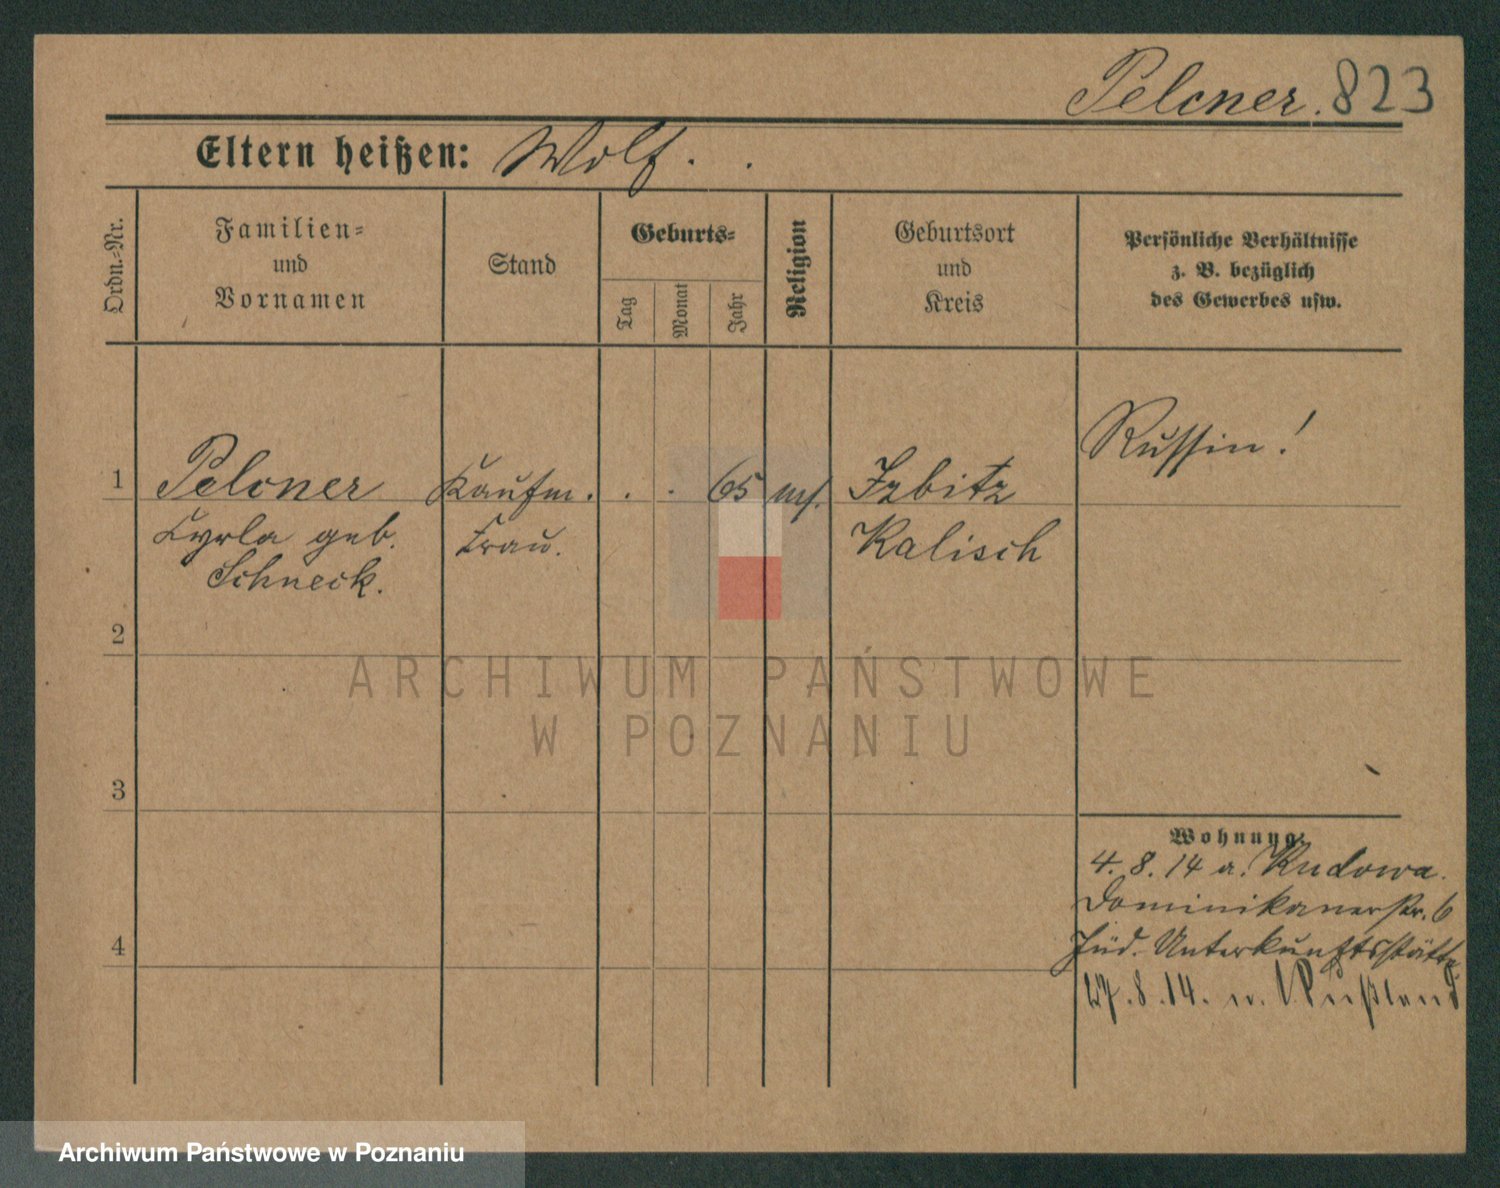 Pelcner. 823
Eltern heißen: Wolf.
Ordn.-Nr.
Familien-
und
Vornamen
Stand
Geburts-
Tag
Monat
Jahr
Religion
Geburtsort
und
Kreis
Persönliche Verhältnisse
z. B. bezüglich
des Gewerbes usw.
Russin!
1 Pelcner Kaufm. . . 65 mos. Izbitz
Cyrla geb. Frau. Kalisch
Schneck.
2
ARCHIWUM PAŃSTWOWE
W POZNANIU
3
Wohnung
4. 8. 14 a. Kudowa.
Dominikanerstr. 6
Jüd. Unterkunftsstätte
4
27. 8. 14. n. Rußland
Archiwum Państwowe w Poznaniu